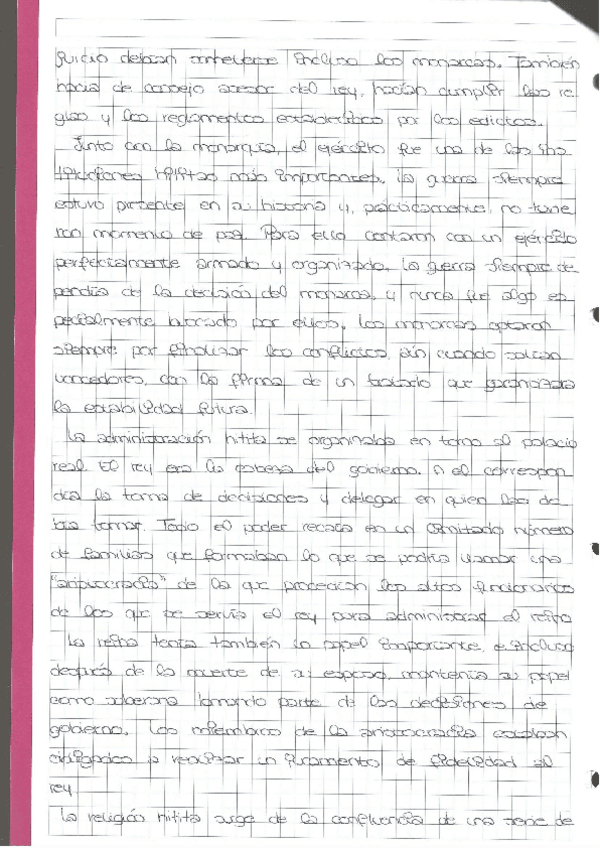 juicio debían someterse incluso los monarcas. También
hacia de consejo asesor del rey, hacían cumplir las re
glas y los reglamentos establecidos por los edictos.
Junto con la monarquía, el ejército fue una de las ins
tituciones hititas más importantes. La guerra siempre
estuvo presente en su historia y, prácticamente, no tuvie
ron momento de paz. Para ello contaron con un ejército
perfectamente armado y organizado. La guerra siempre de
pendía de la decisión del monarca, y nunca fue algo es
pecialmente buscado por ellos, los monarcas optaron
siempre por finalizar los conflictos, aún cuando salían
vencedores, con la firma de un tratado que garantizara
la estabilidad futura.
La administración hitita se organizaba en torno al palacio
real. El rey era la cabeza del gobierno. A el correspon
día la toma de decisiones y delegar en quien las de
bia tomar. Todo el poder recaía en un limitado número
de familias que formaban lo que se podría llamar una
"aristocracia" de la que procedían los altos funcionarios
de los que se servía el rey para administrar el reino
La reina tenía también un papel importante, e incluso
después de la muerte de su esposo, mantenía su papel
como soberana tomando parte de las decisiones de
gobierno. Los miembros de la aristocracia estaban
obligados a realizar un juramento de fidelidad al
rey
La religión hitita surge de la confluencia de una serie de